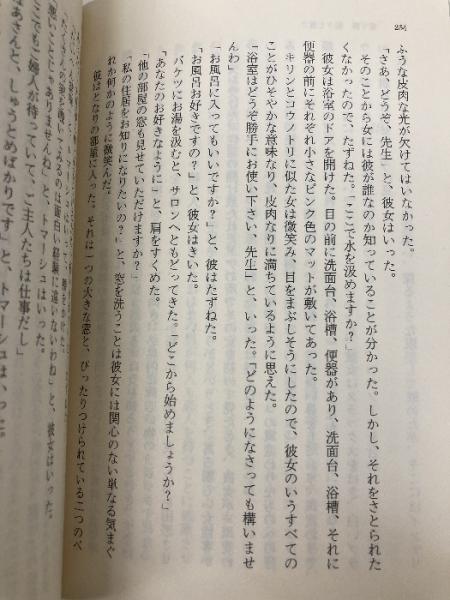 234
ふうな皮肉な光が欠けてはいなかった。
「さあ、どうぞ、先生」と、彼女はいった。
そのことから女には彼が誰なのか知っていることが分かった。しかし、それをさとられた
くなかったので、たずねた。「ここで水を汲めますか？」
彼女は浴室のドアを開けた。目の前に洗面台、浴槽、便器があり、洗面台、浴槽、それに
便器の前にそれぞれ小さなピンク色のマットが敷いてあった。
キリンとコウノトリに似た女は微笑み、目をまぶしそうにしたので、彼女のいうすべての
ことがひそやかな意味なり、皮肉なりに満ちているように思えた。
「浴室はどうぞ勝手にお使い下さい、先生」と、いった。「どのようになさっても構いませ
んわ」
「お風呂に入ってもいいですか？」と、彼はたずねた。
「お風呂お好きですの？」と、彼女はきいた。
バケツにお湯を汲むと、サロンへともどってきた。「どこから始めましょうか？」
「あなたのお好きなように」と、肩をすくめた。
「他の部屋の窓も見せていただけますか？」
「私の住居をお知りになりたいの？」と、窓を洗うことは彼女には関心のない単なる気まぐ
れか何かのように微笑んだ。
彼はとなりの部屋に入った。それは一つの大きな窓と、ぴったりつけられている二つのベ
みるのは面白い経験に違いないわね」と、女はいった。
悪いことじゃありませんね」と、トマーシュはいった。
こでも、ご婦人が待っていて、ご主人たちは仕事だし」
ばあさんと、しゅうとめばかりです」と、トマーシュは